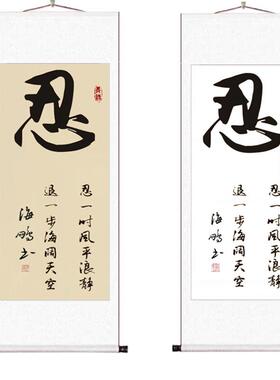 忍
忍一时风平浪静
退一步海阔天空
海鹏书
忍
忍一时风平浪静
退一步海阔天空
海鹏书